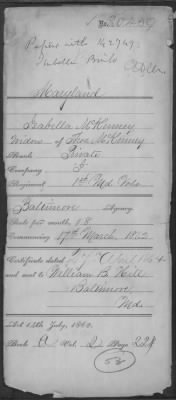 Papers with 142749.
Maryland
Isabella McKinney
Widow of Thos. McKinney
Rank Private
Company I
Regiment 1st Md Vols
Baltimore Agency
Rate per month, $8
Commencing 17th March, 1862
Certificate dated 27 April 1864
and sent to William B. Hill
Baltimore
Md.
Act 14th July, 1862.
Book A Vol. 2 Page 224